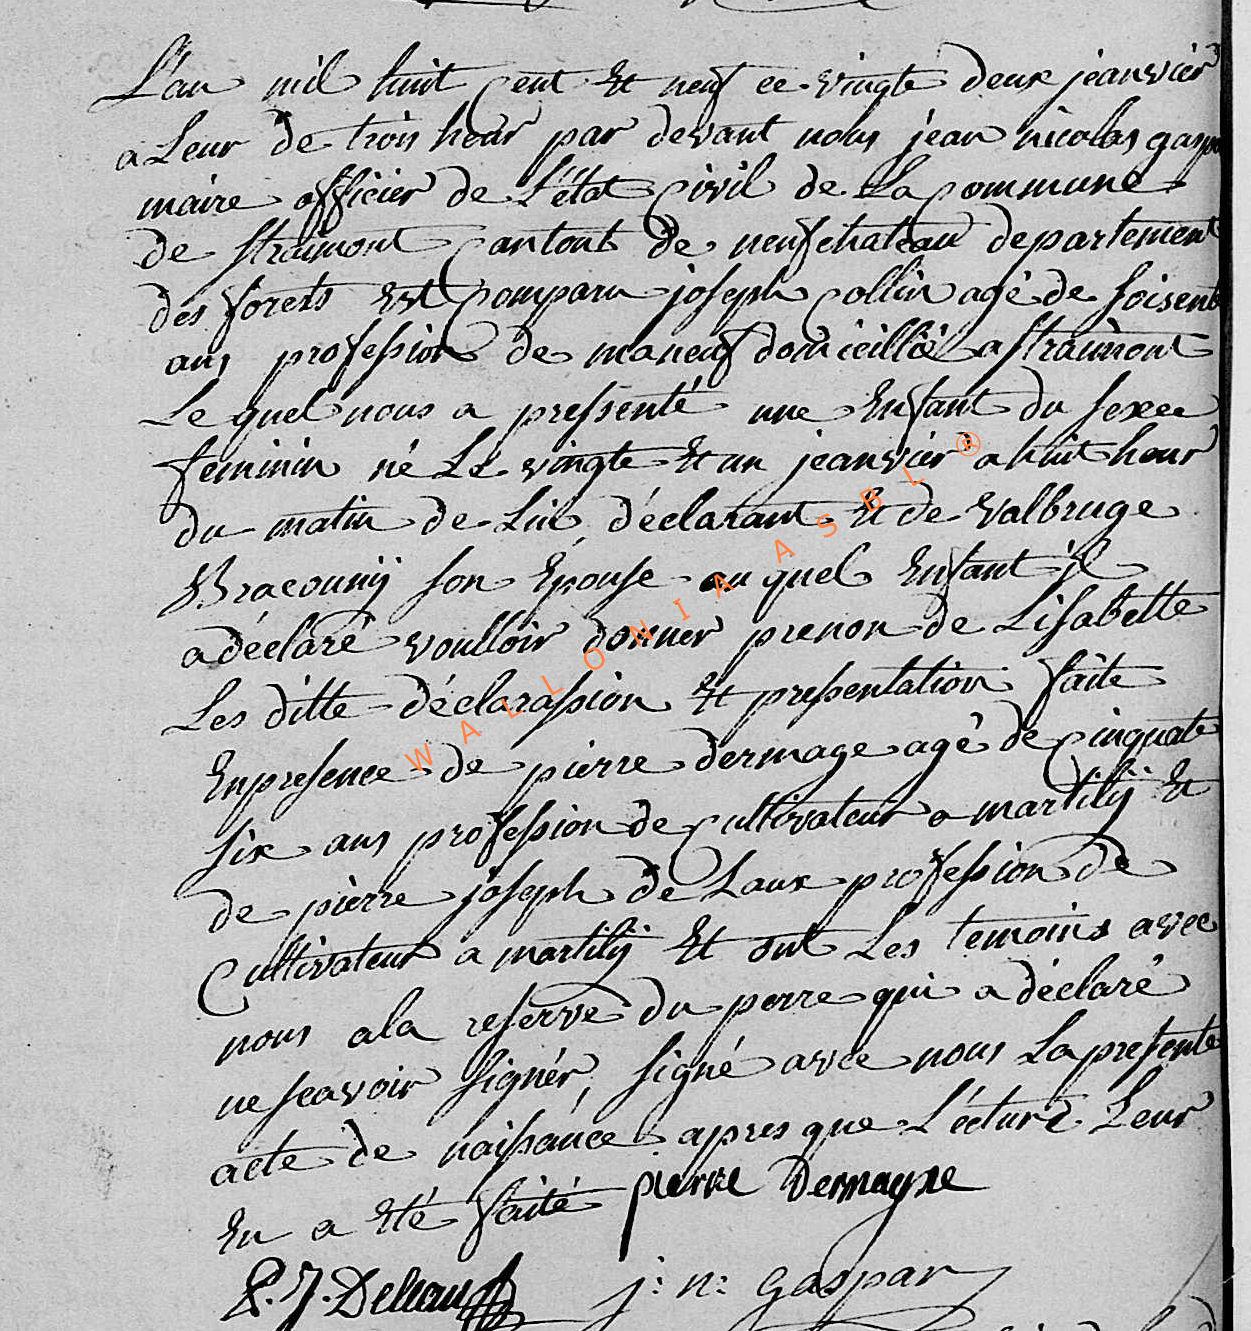 L'an mil huit cent et neuf ce vingte deux jeanvier
a Leur de trois heur par devant nous jean nicolas gaspar
maire officier de L'état civil de La commune
de straimont cantont de neufchateau departement
des forets est comparu joseph collin agé de soisente
ans profession de maneuf domicillié a straimont
Le quel nous a pressenté une Enfant du sexee
feminin né Le vingte et un jeanvier a huit heur
du matin de Lui déclarant et de Valbruge
Braconnij son Épouse au quel Enfant jl
a déclaré voulloir donner prenon de Lisabette
Les ditte déclarassion et presentation faite
En presence de pierre dermage agé de cinquate
six ans profession de cultivateur a martilij et
de pierre joseph de Laux profession de
cultivateur a martilij Et ont Les temoins avec
nous ala reserve du perre qui a déclaré
ne scavoir signér, signé avec nous La presente
acte de naissance apres que L'écture Leur
En a Eté faité pierre Dermagne
P. J. Delleau
j: n: gaspar
WALLONIA ASBL ®